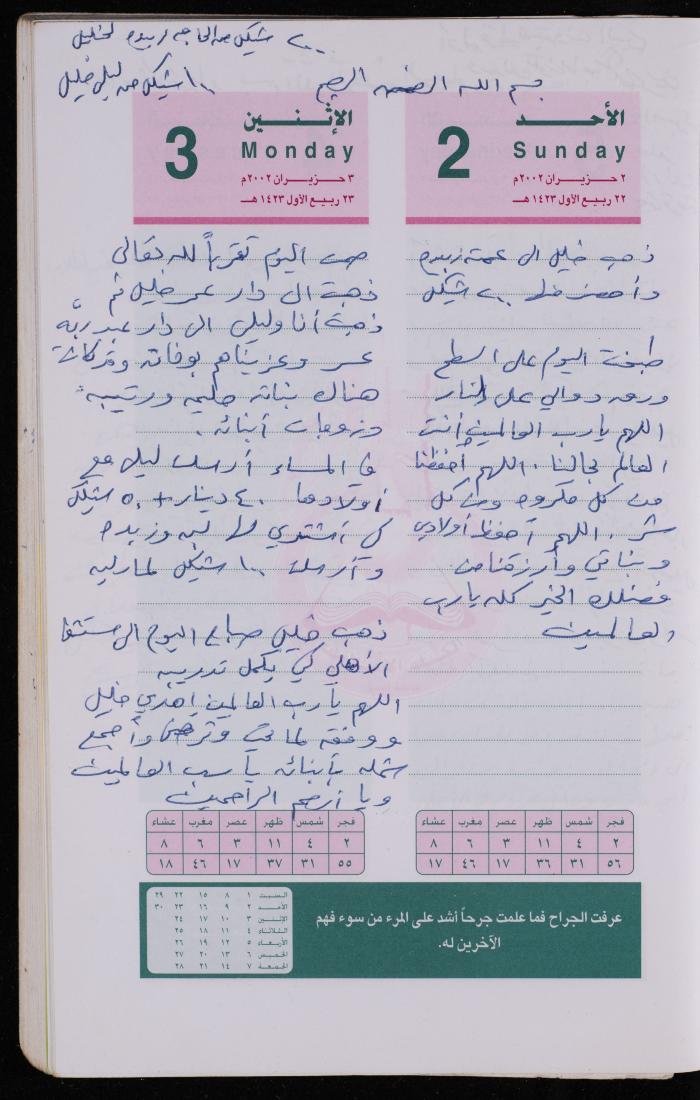 ٢٠٠ شيكل من الحاجه زبيده لخليل
١٠٠ شيكل من ليلى خليل
بسم الله الرحمن الرحيم
الأحـــد
2 Sunday
٢ حـزيـران ٢٠٠٢م
٢٢ ربيع الأول ١٤٢٣ هـ
ذهب خليل الى عمته زبيده
وأحضر لها ٢٠٠ شيكل
طبخت اليوم على السطح
ورق دوالي على النار
اللهم يا رب العالمين أنت
العالم بحالنا . اللهم أحفظنا
من كل مكروه ومن كل
شر . اللهم أحفظ أولادي
وبناتي وأرزقنا من
فضلك الخير كله يا رب
العالمين
الإثـنـــين
3 Monday
٣ حـزيـران ٢٠٠٢م
٢٣ ربيع الأول ١٤٢٣ هـ
صمت اليوم تقرباً لله تعالى
ذهبت الى دار عمر خليل ثم
ذهبت أنا وليلى الى دار عبد ربه
وعزيناهم بوفاته وقد كانت
هناك بناته حليمه ورتيبه
وزوجات أبنائه .
في المساء أرسلت ليلى مع
أولادها ٤٠ دينار + ٥٠ شيكل
كي أشتري لها لبه وزبده
وأرسلت ١٠٠ شيكل لمارليه
ذهب خليل صباح اليوم الى مستشفى
الأهلي كي يكمل تدريبه
اللهم يا رب العالمين إهدي خليل
ووفقه لما تحب وترضى وأجمع
شمله بأبنائه يا رب العالمين
ويا أرحم الراحمين
فجر شمس ظهر عصر مغرب عشاء
٢ ٤ ١١ ٣ ٦ ٨
٥٦ ٣١ ٣٦ ١٧ ٤٦ ١٧
فجر شمس ظهر عصر مغرب عشاء
٢ ٤ ١١ ٣ ٦ ٨
٥٥ ٣١ ٣٧ ١٧ ٤٦ ١٨
عرفت الجراح فما علمت جرحاً أشد على المرء من سوء فهم
الآخرين له.
السبت ١ ٨ ١٥ ٢٢ ٢٩
الأحد ٢ ٩ ١٦ ٢٣ ٣٠
الإثنين ٣ ١٠ ١٧ ٢٤
الثلاثاء ٤ ١١ ١٨ ٢٥
الأربعاء ٥ ١٢ ١٩ ٢٦
الخميس ٦ ١٣ ٢٠ ٢٧
الجمعة ٧ ١٤ ٢١ ٢٨